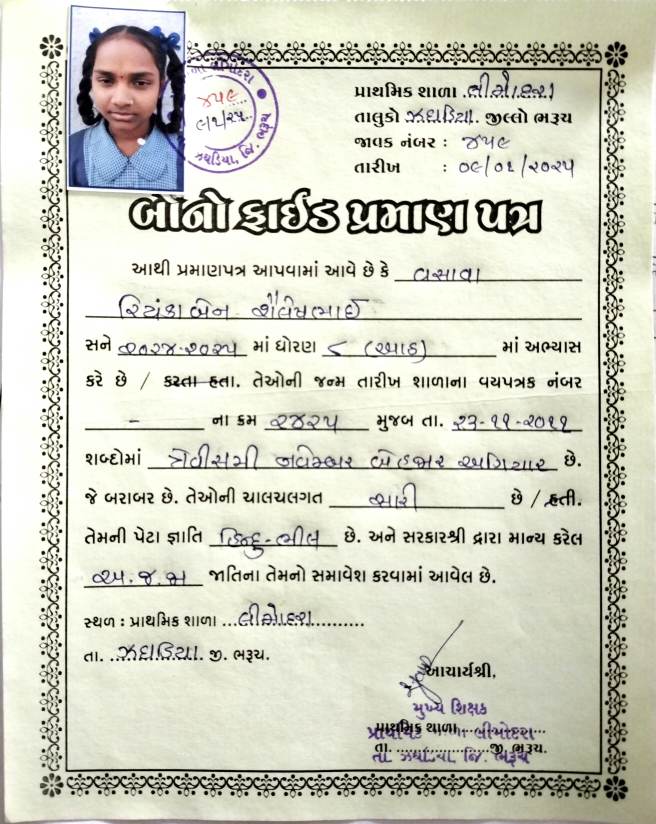 પ્રાથમિક શાળા લીમોદરા
તાલુકો ઝઘડિયા. જીલ્લો ભરૂચ
જાવક નંબર : ૪૫૯
તારીખ : ૦૯/૦૧/૨૦૨૫
૪૫૯
૯/૧/૨૫
ઝઘડિયા, જિ. ભરૂચ
બોનોફાઈડ પ્રમાણ પત્ર
આથી પ્રમાણપત્ર આપવામાં આવે છે કે વસાવા
પ્રિયંકાબેન શૈલેષભાઈ
સને ૨૦૨૪-૨૦૨૫ માં ધોરણ ૮ (આઠ) માં અભ્યાસ
કરે છે / કરતા હતા. તેઓની જન્મ તારીખ શાળાના વયપત્રક નંબર
- ના ક્રમ ૨૪૨૫ મુજબ તા. ૨૩-૧૧-૨૦૧૧
શબ્દોમાં ત્રેવીસમી નવેમ્બર બેહજાર અગિયાર છે.
જે બરાબર છે. તેઓની ચાલચલગત સારી છે / હતી.
તેમની પેટા જ્ઞાતિ હિન્દુ-ભીલ છે. અને સરકારશ્રી દ્વારા માન્ય કરેલ
અ.જ.જા જાતિના તેમનો સમાવેશ કરવામાં આવેલ છે.
સ્થળ : પ્રાથમિક શાળા ...લીમોદરા...........
તા. ..ઝઘડિયા.. જી. ભરૂચ.
આચાર્યશ્રી,
મુખ્ય શિક્ષક
પ્રાથમિક શાળા.................
પ્રાથમિક શાળા લીમોદરા
તા. ..................જી. ભરૂચ.
તા. ઝઘડિયા જિ. ભરૂચ